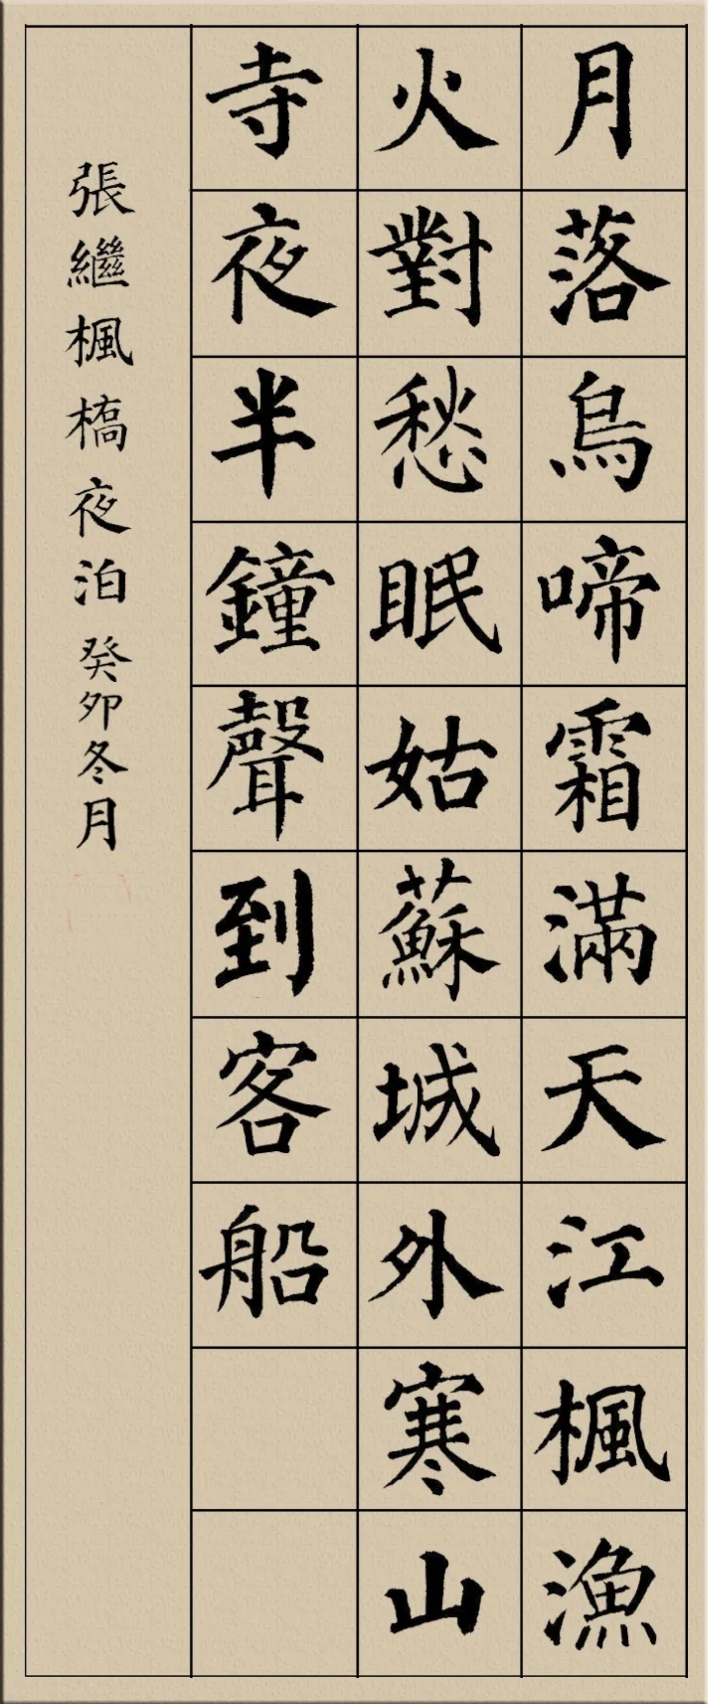 月落烏啼霜滿天江楓漁
火對愁眠姑蘇城外寒山
寺夜半鐘聲到客船
張繼楓橋夜泊癸卯冬月